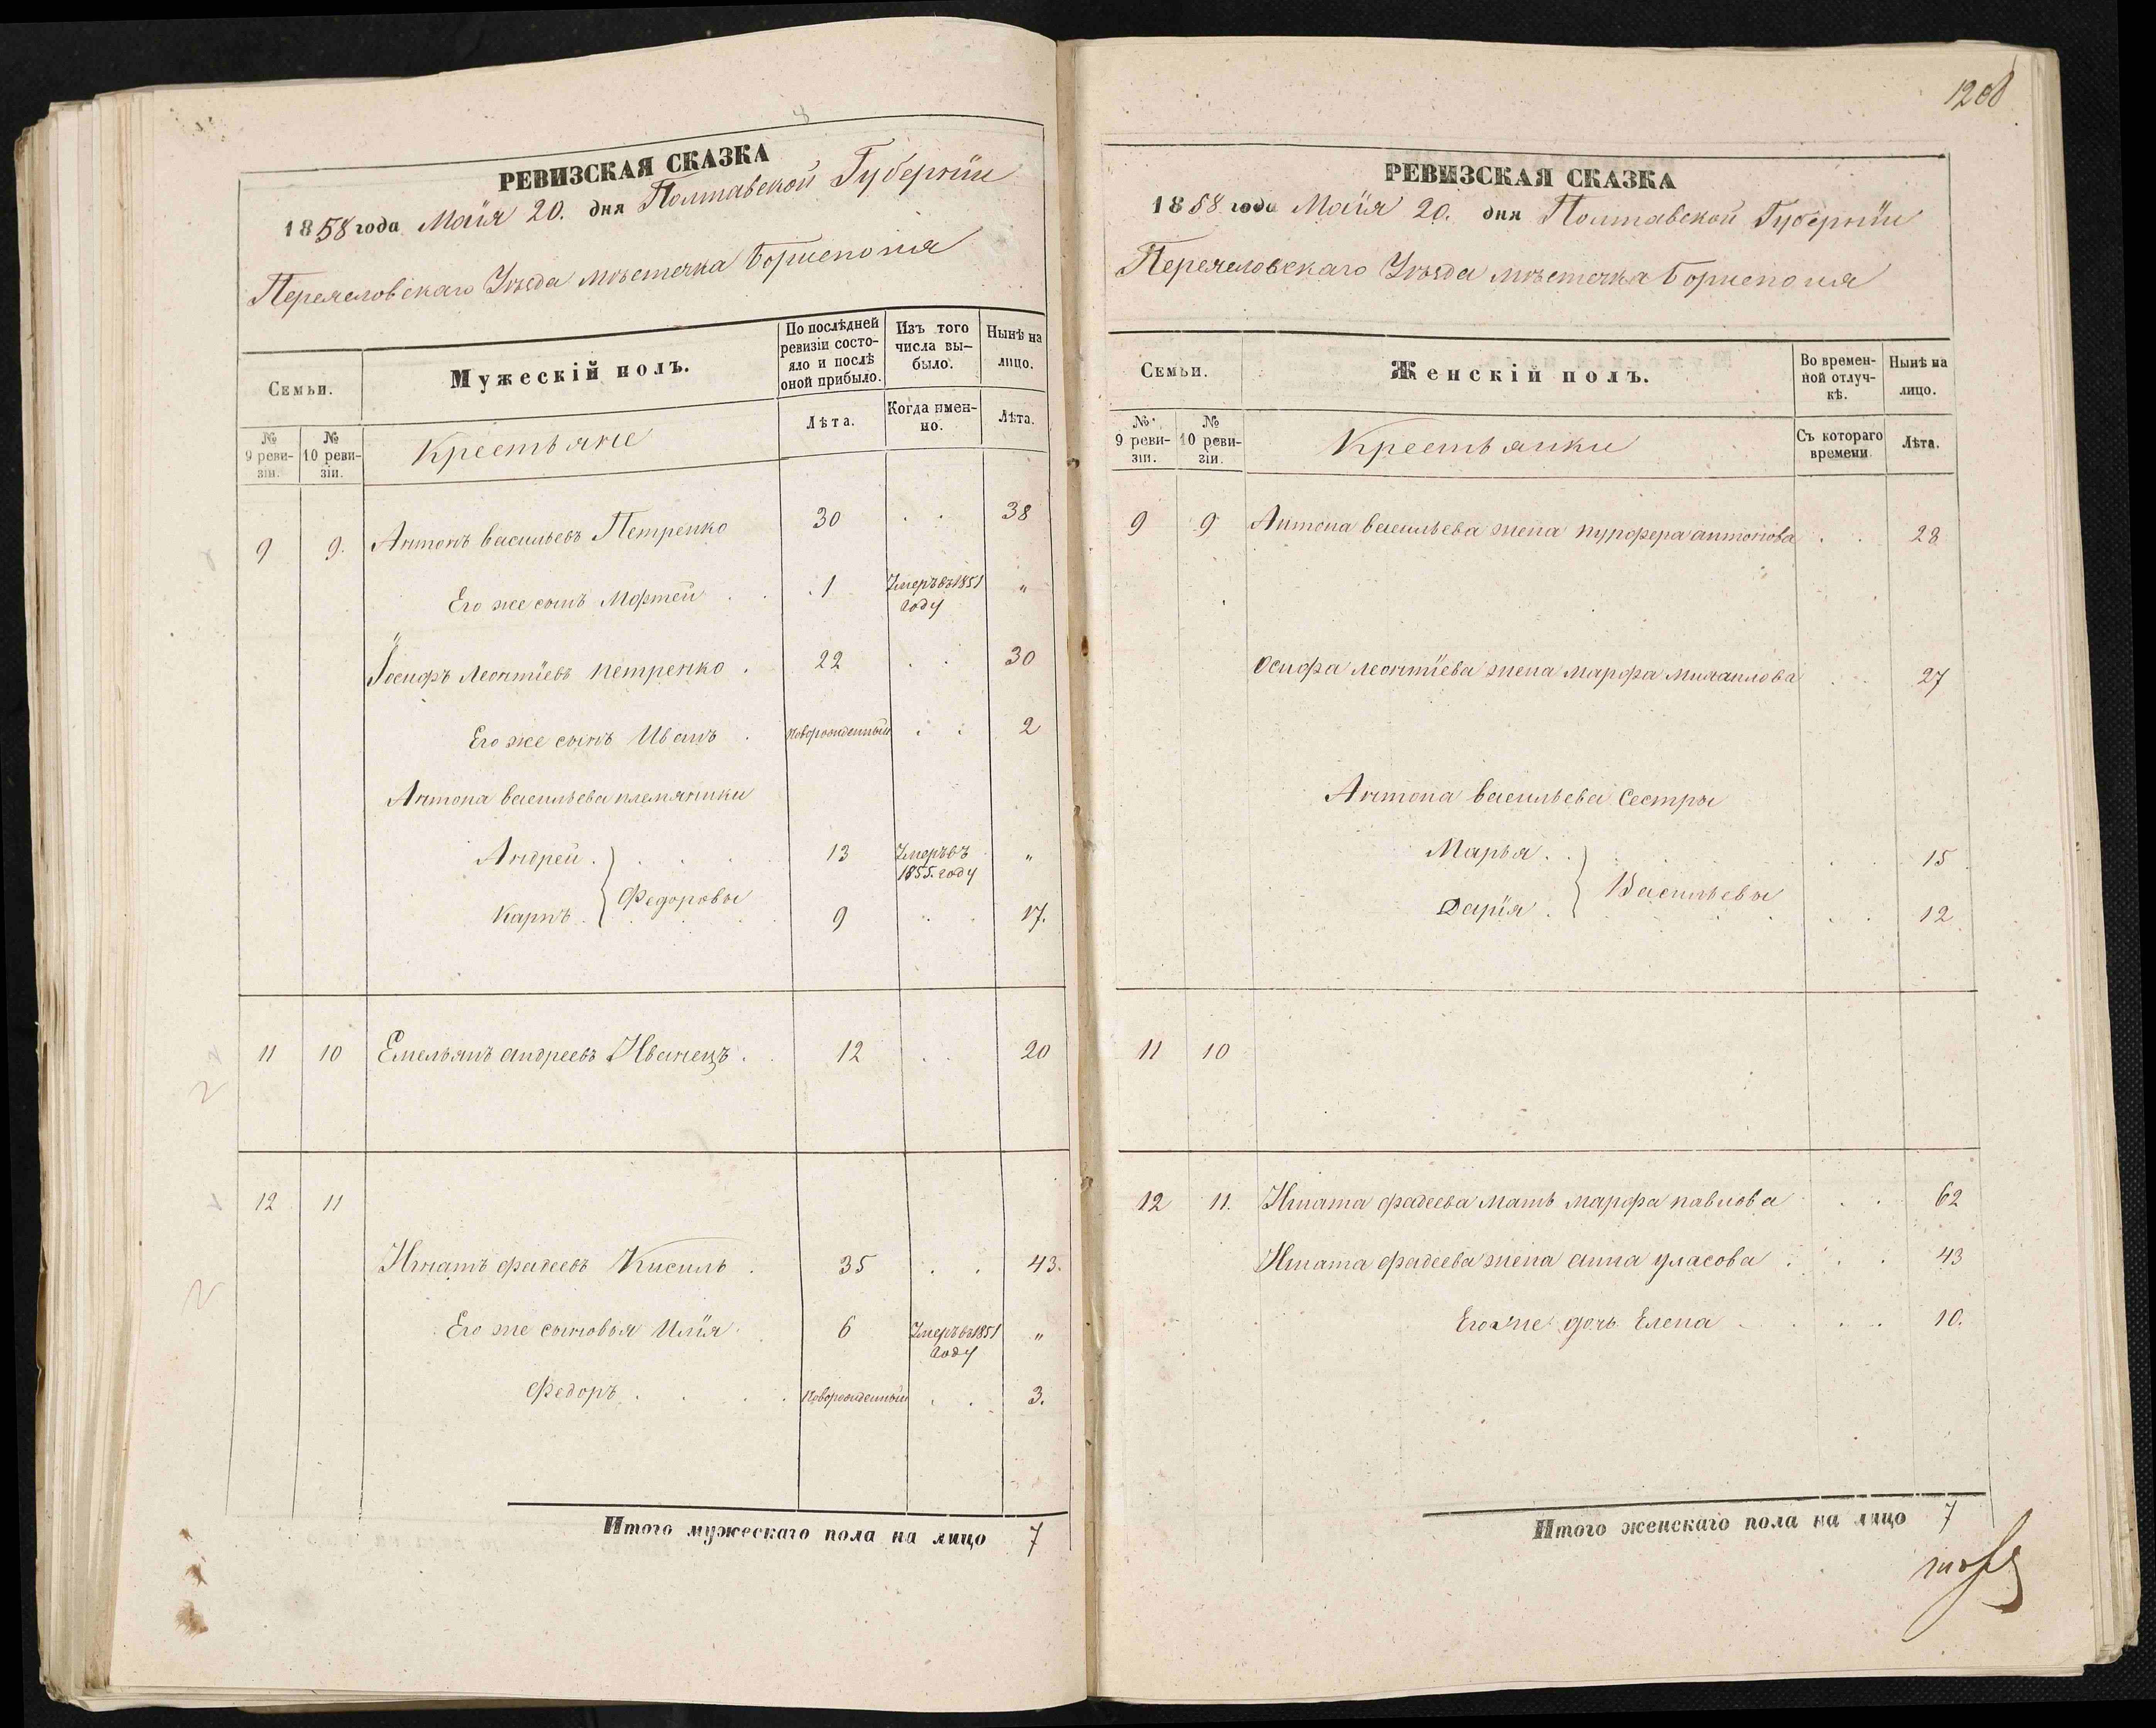 РЕВИЗСКАЯ СКАЗКА
1858 года Маія 20. дня Полтавской Губерніи
Переяславскаго Уѣзда мѣстечка Борисполя
Семьи.
Мужескій полъ.
По послѣдней ревизіи состояло и послѣ оной прибыло.
Изъ того числа выбыло.
Нынѣ на лицо.
№ 9 ревизіи.
№ 10 ревизіи.
Крестьяне
Лѣта.
Когда именно.
Лѣта.
9 9. Антонъ васильевъ Петренко 30 . . 38
Его же сынъ Мофтей . . 1 Умеръ въ 1851 году "
Іосифъ Леонтіевъ петренко . 22 . . 30
Его же сынъ Иванъ . новорожденный . . 2
Антона васильева племянники
Андрей . } . . . 13 Умеръ въ 1855. году "
Федоровы
Карпъ . } . . . 9 . . 17.
11 10 Емельянъ андреевъ Иванецъ . 12 . . 20
12 11
Игнатъ фадеевъ Кисиль . 35 . . 43.
Его же сыновья Илія . 6 Умеръ въ 1851 году "
Федоръ . . . . Новорожденный . . 3.
Итого мужескаго пола на лицо 7
1208
РЕВИЗСКАЯ СКАЗКА
1858 года Маія 20. дня Полтавской Губерніи
Переяславскаго Уѣзда мѣстечка Борисполя
Семьи.
Женскій полъ.
Во временной отлучкѣ.
Нынѣ на лицо.
№ 9 ревизіи.
№ 10 ревизіи.
Крестьянки
Съ котораго времени
Лѣта.
9 9 Антона васильева жена пурфера антонова . . 28
Осифа леонтіева жена марфа михаилова . . 27
Антона васильева Сестры
Марья . . } . . 15
Васильевы
Дарія . } . . 12
11 10
12 11. Игната фадеева Мать марфа павлова . . 62
Игната фадеева жена анна уласова . . . 43
Его же дочь Елена . . . . 10.
Итого женскаго пола на лицо 7